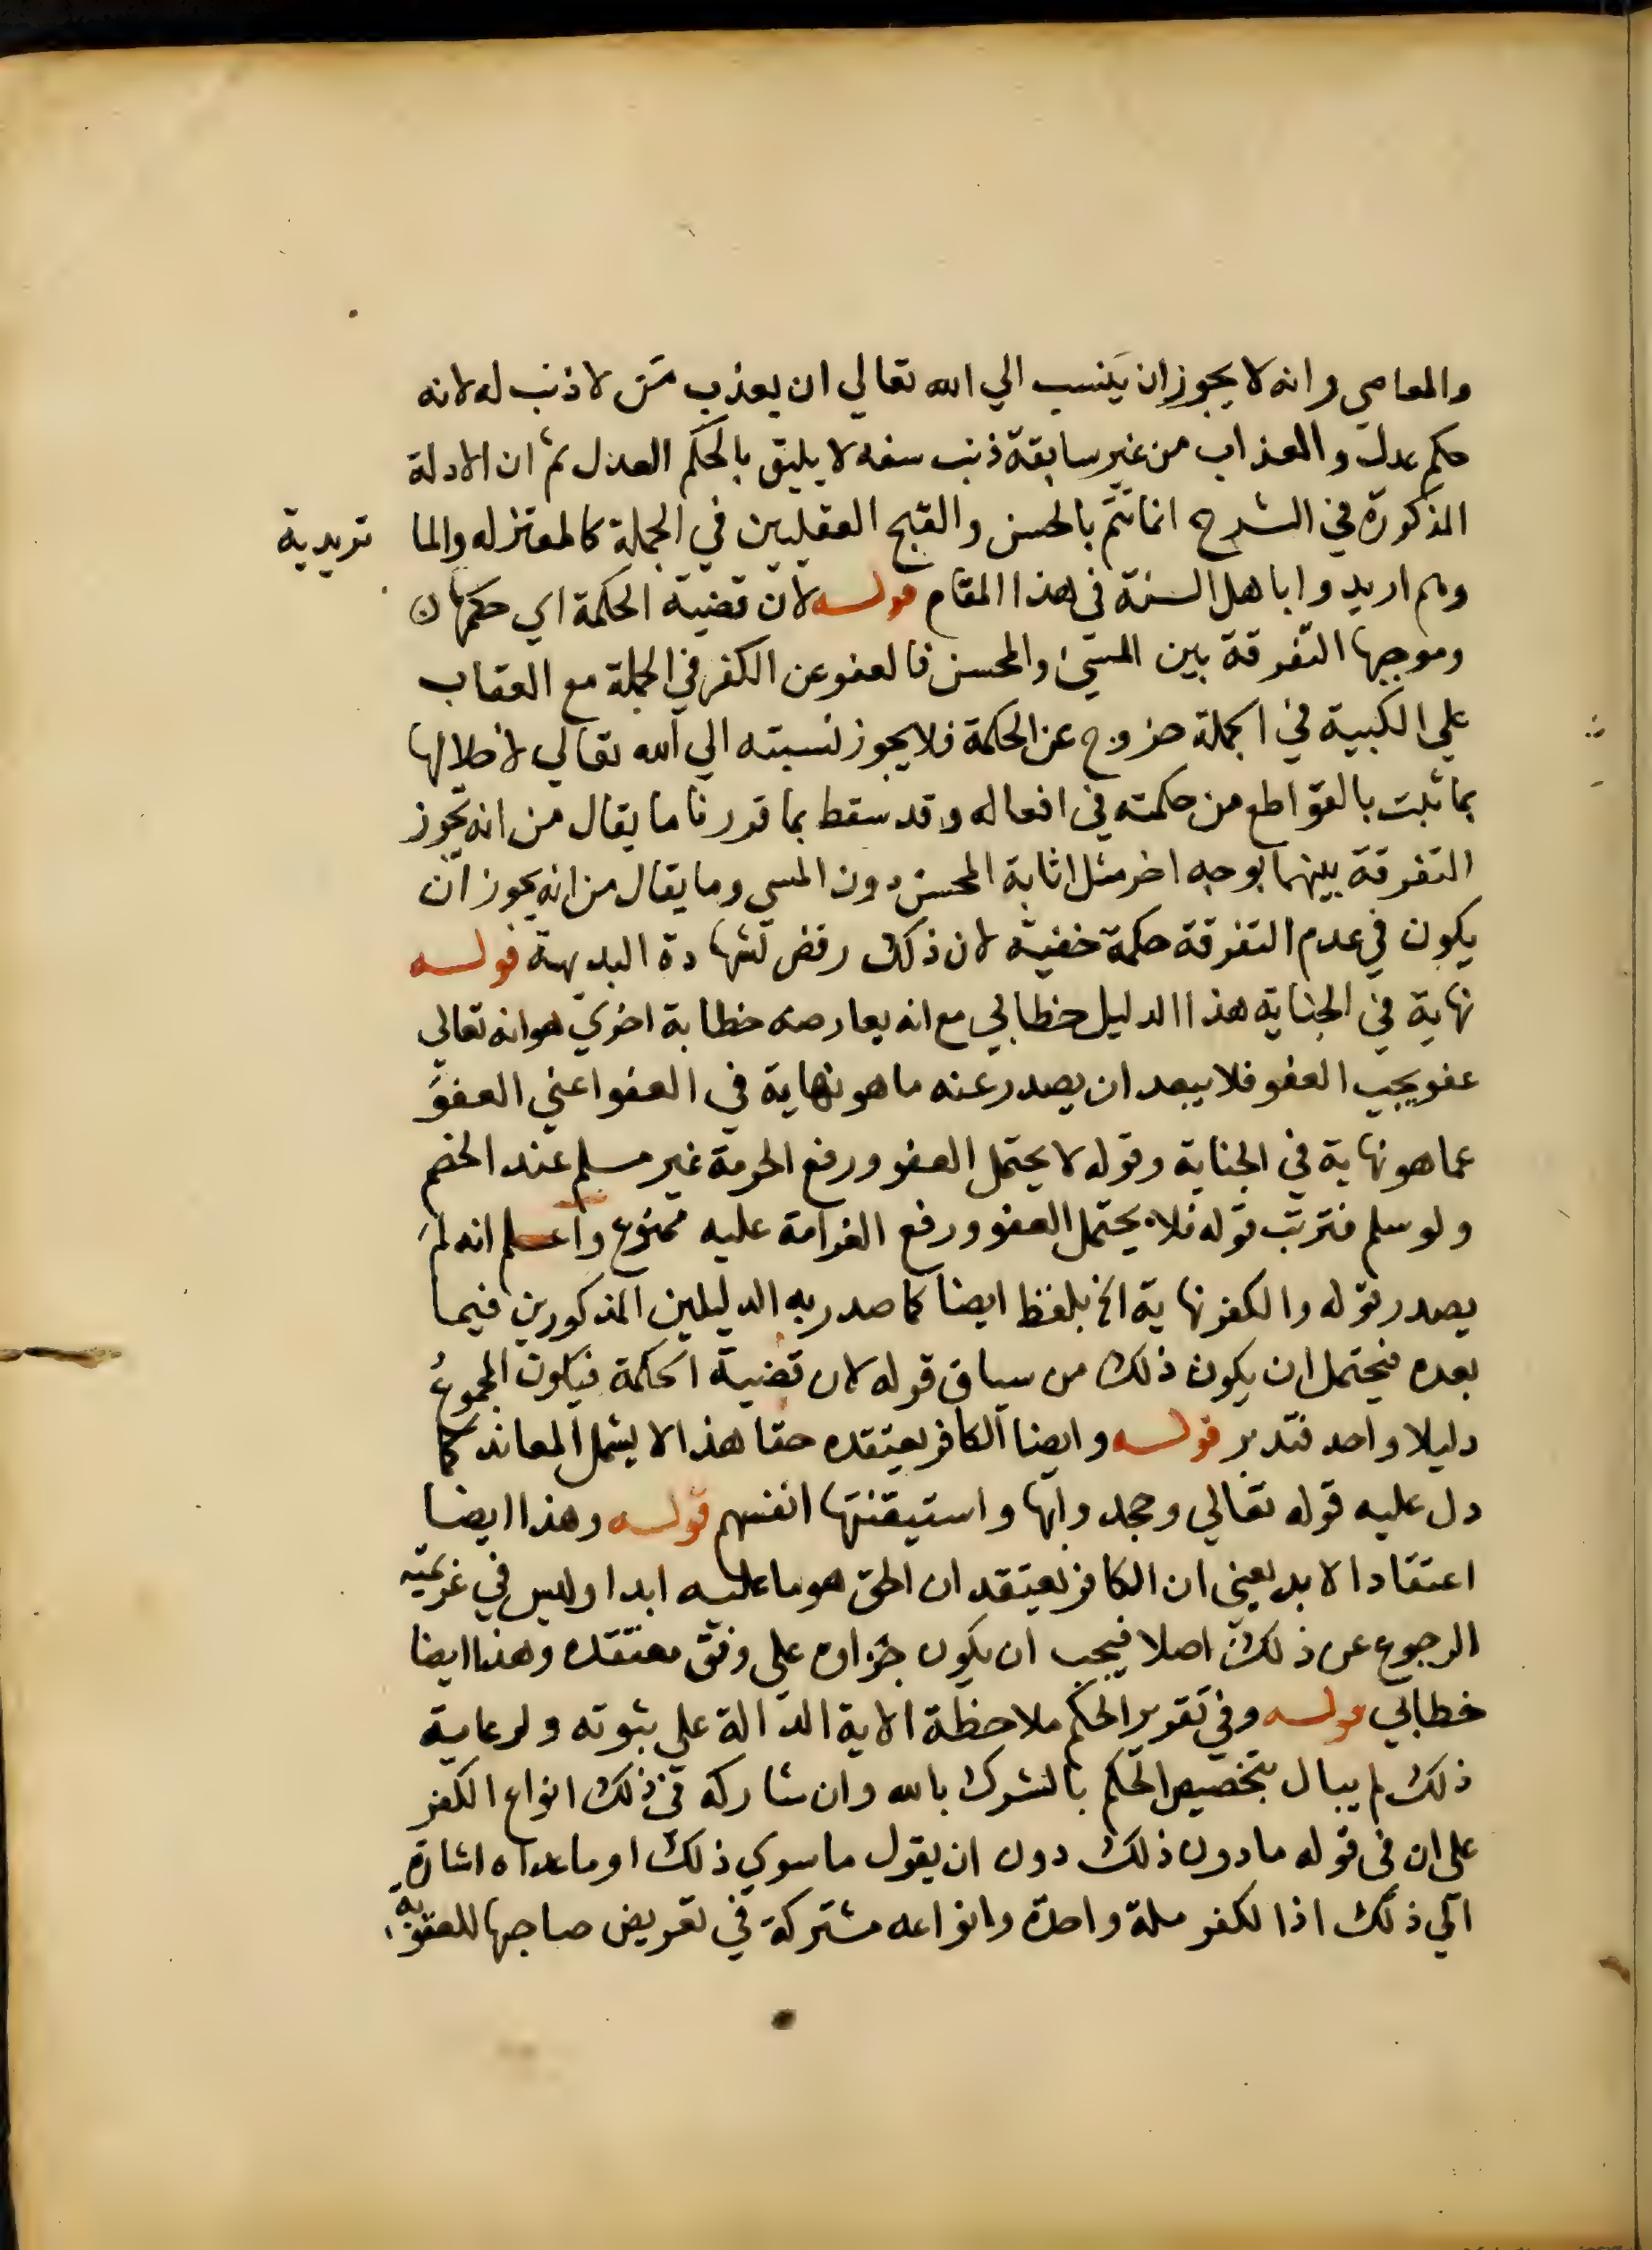 والمعاصي وانه لا يجوز ان ينسب الي الله تعالي ان يعذب من لا ذنب له لانه
حكم عدل والعذاب من غير سابقة ذنب سفه لا يليق بالحكم العدل ثم ان الادلة
المذكورة في الشرح انما تتم بالحسن والقبح العقليين في الجملة كالمعتزله والما تريدية
وهم اريدوا باهل السنة في هذا المقام قوله لان قضية الحكمة اي حكمها
وموجبها التفرقة بين المسيئ والمحسن فالعفو عن الكفر في الجملة مع العقاب
علي الكبيرة في الجملة خروج عن الحكمة فلا يجوز نسبته الي الله تعالي لاخلالها
بما ثبت بالقواطع من حكمته في افعاله وقد سقط بما قررنا ما يقال من انه تجوز
التفرقة بينهما بوجه اخر مثل اثابة المحسن دون المسي وما يقال من انه يجوز ان
يكون في عدم التفرقة حكمة خفية لان ذلك رفض لشهادة البديهة قوله
نهاية في الجناية هذا الدليل خطابي مع انه يعارضه خطابة اخري هو انه تعالي
عفو يحب العفو فلا يبعد ان يصدر عنه ما هو نهاية في العفو اعني العفو
عما هو نهاية في الجناية وقوله لا يحتمل العفو ورفع الحرمة غير مسلم عند الخصم
ولو سلم فترتب قوله فلا يحتمل العفو ورفع الغرامة عليه ممنوع واعلم انه لم
يصدر قوله والكفر نهاية الخ بلفظ ايضا كما صدر به الدليلين المذكورين فيما
بعده فيحتمل ان يكون ذلك من سياق قوله لان قضية الحكمة فيكون المجموع
دليلا واحد فتدبر قوله وايضا الكافر يعتقده حقا هذا لا يشمل المعاند كما
دل عليه قوله تعالي وجحدوا بها واستيقنتها انفسهم قوله وهذا ايضا
اعتقاد الابد يعني ان الكافر يعتقد ان الحق هو ما عليه ابدا وليس في عزيمته
الرجوع عن ذلك اصلا فيجب ان يكون جزاوه علي وفق معتقده وهذا ايضا
خطابي قوله وفي تقرير الحكم ملاحظة الاية الدالة علي ثبوته ولرعاية
ذلك لم يبال بتخصيص الحكم بالشرك بالله وان شاركه في ذلك انواع الكفر
علي ان في قوله ما دون ذلك دون ان يقول ما سوي ذلك او ما عداه اشارة
الي ذلك اذ الكفر ملة واحدة وانواعه مشتركة في تعريض صاحبها للعقوبة